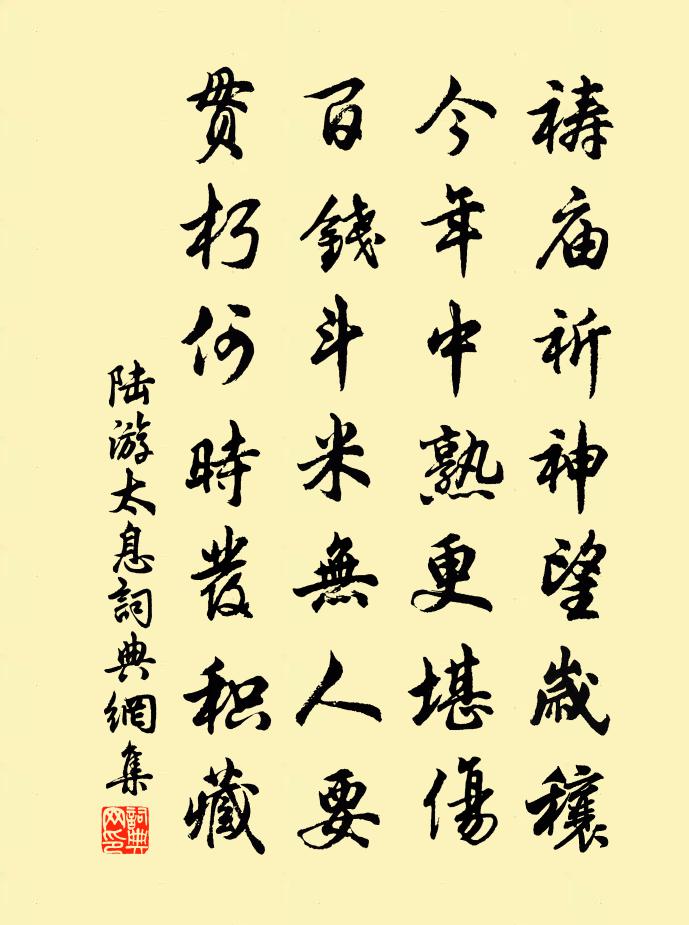 禱庙祈神望歲穰
今年中熟更堪傷
百錢斗米無人要
贯朽何時發积藏
陆游太息詞典網集
詞典网印